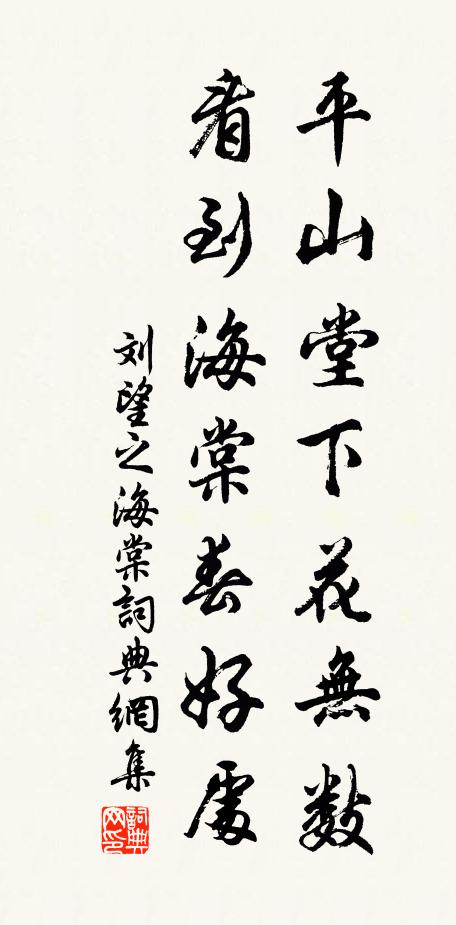 平山堂下花無數
看到海棠春好處
刘望之海棠詞典網集
詞典网印